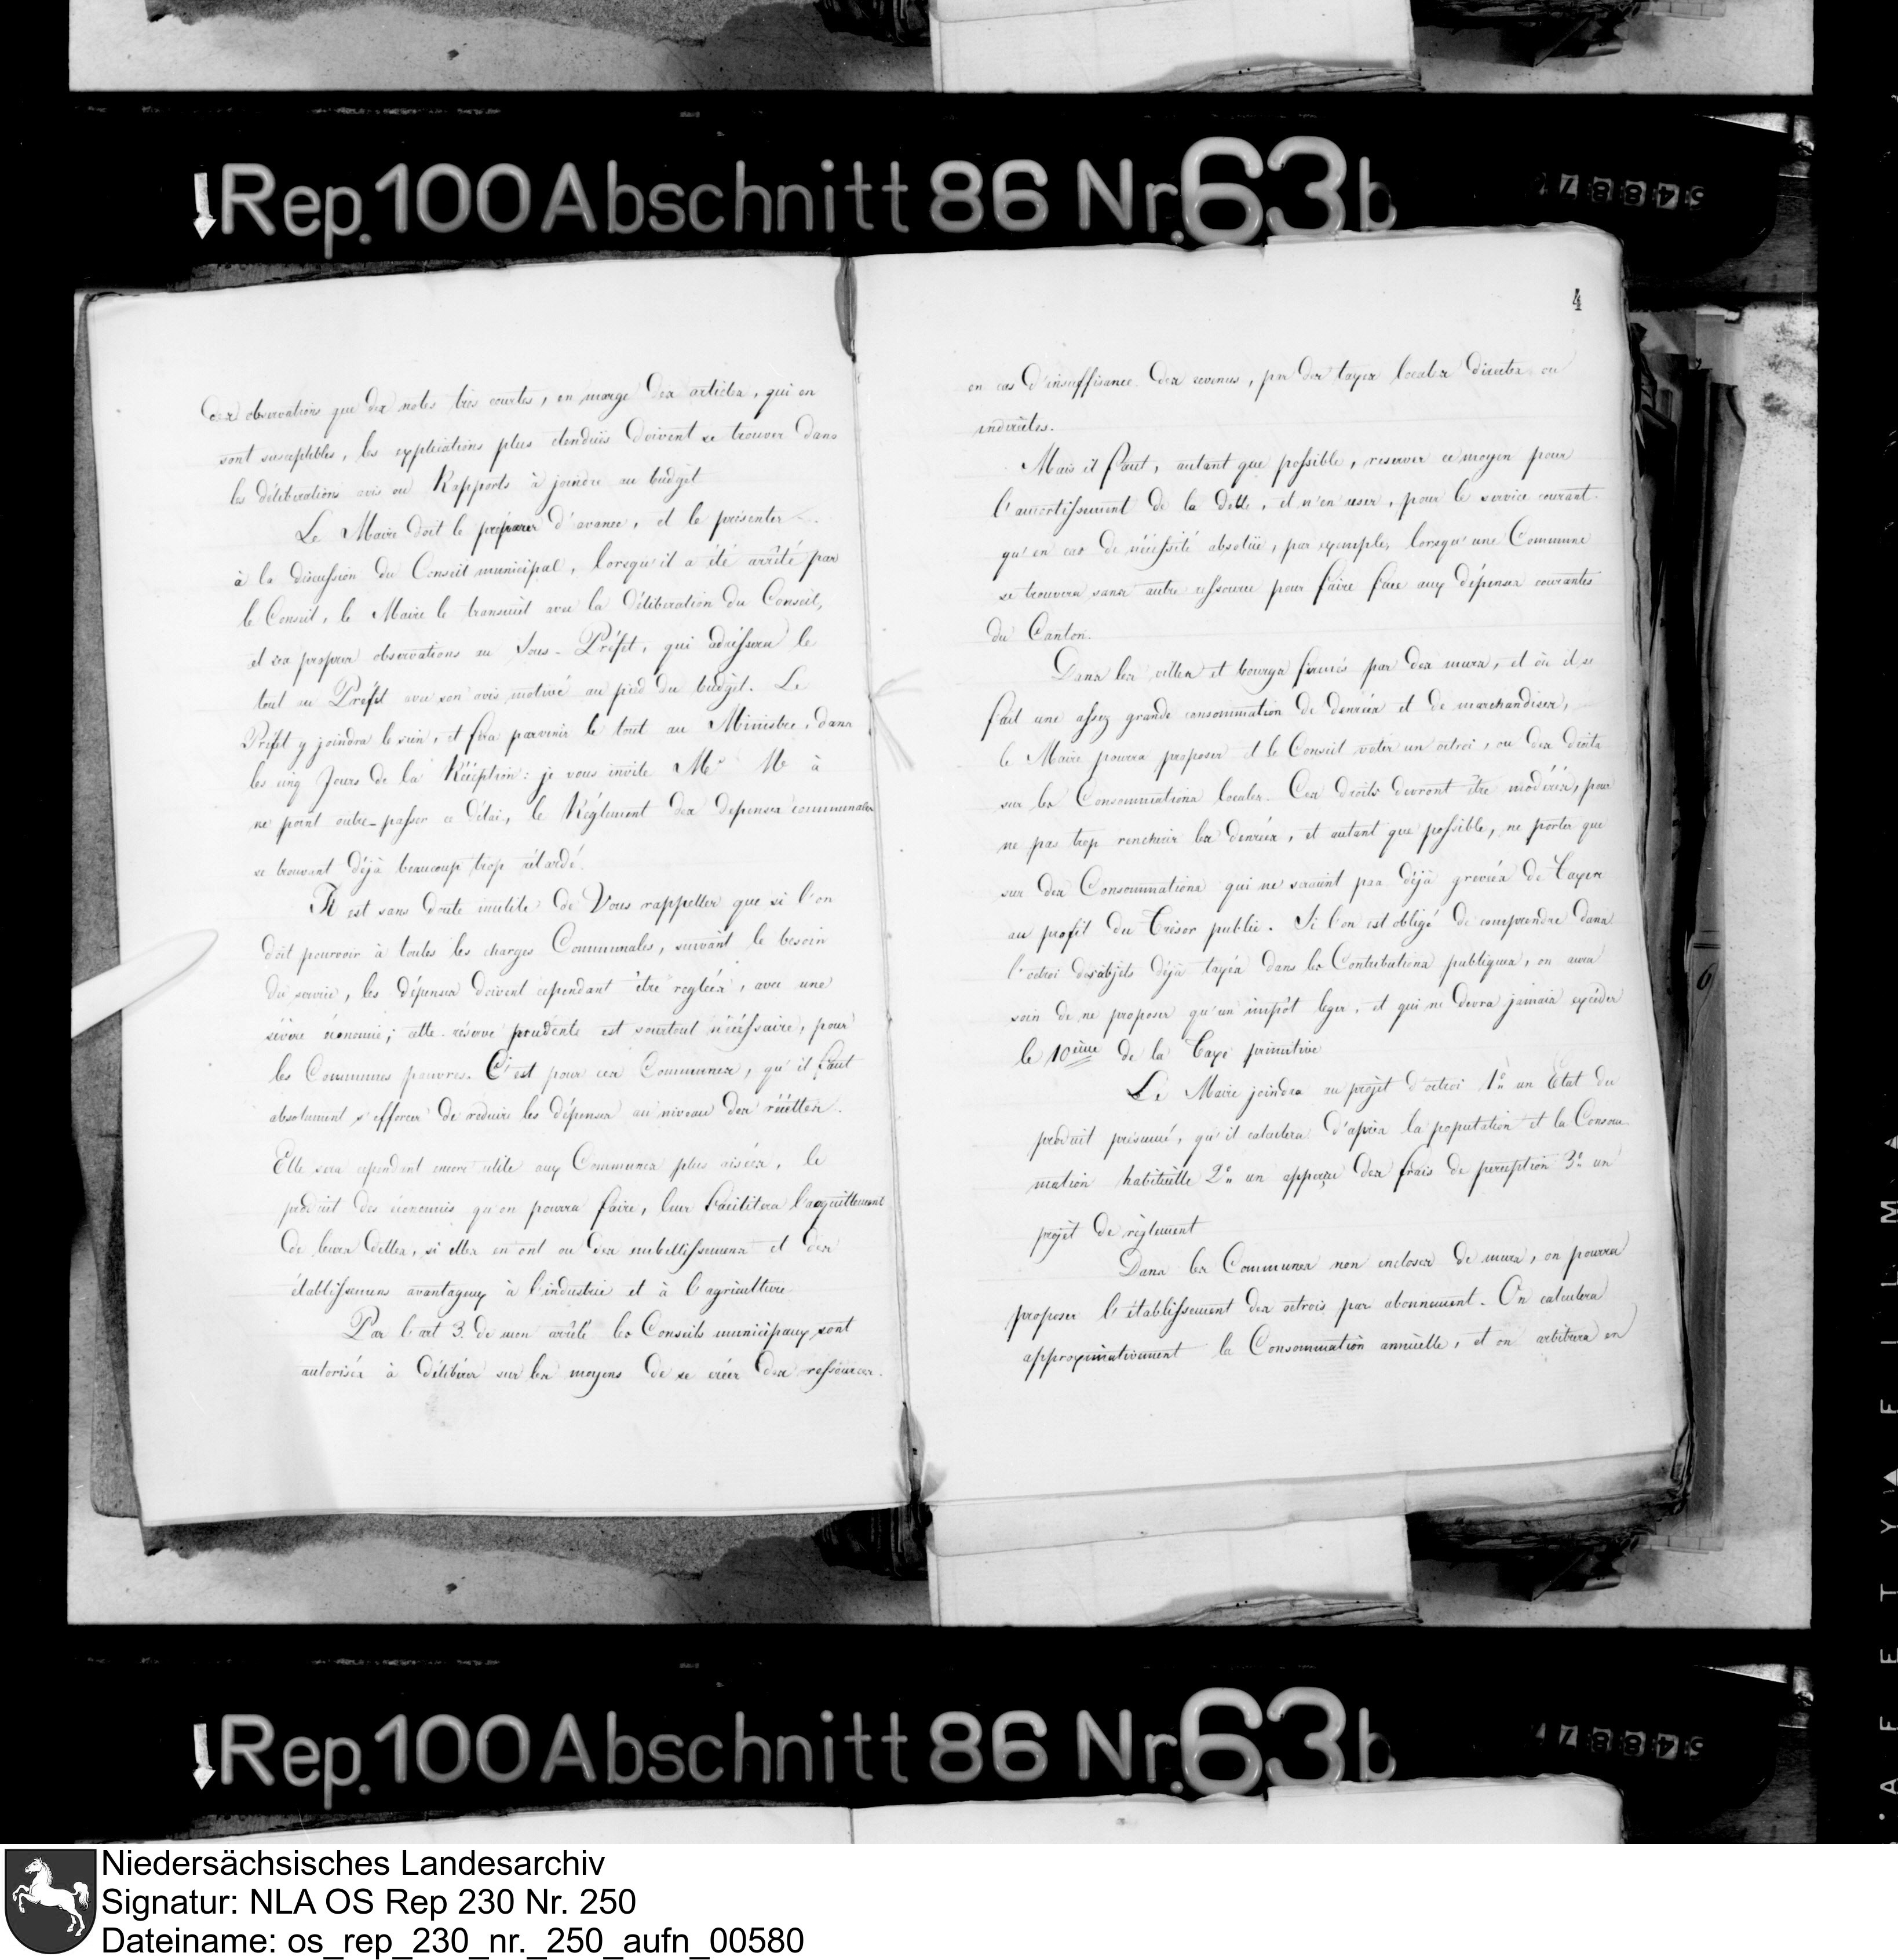 Rep. 100 Abschnitt 86 Nr. 63 b
des observations que des notes très courtes, en marge des articles, qui en
sont susceptibles, les explications plus etendües doivent se trouver dans
les délibérations avis ou Rapports à joindre au budget
Le Maire doit le préparer d'avance, et le présenter
à la discussion du Conseil municipal, lorsqu'il a été arrêté par
le Conseil, le Maire le transmet avec la Délibération du Conseil,
et ses propres observations au Sous-Préfet, qui adréssera le
tout au Préfet avec son avis motivé au pied du budget. Le
Préfet y joindra le sien, et fera parvenir le tout au Ministre, dans
les cinq Jours de la Réception: je vous invite Mrs M à
ne point outre-passer ce délai, le Réglement des depenses communales
se trouvant déjà beaucoup trop rétardé.
Il est sans doute inutile de Vous rappeller que si l'on
doit pourvoir à toutes les charges Communales, suivant le besoin
du service, les dépenses doivent cependant être regleés, avec une
sévère économie; cette réserve prudente est sourtout nécéssaire, pour
les Communes pauvres. C'est pour ces Communes, qu'il faut
absolument s'efforcer de reduire les dépenses au niveau des récettes.
Elle sera cependant encore utile aux Communes plus aisées, le
produit des économies qu'on pourra faire, leur facilitera l'acquittement
de leurs dettes, si elles en ont ou des embellissemens et des
établissemens avantageux à l'industrie et à l'agriculture
Par l'art 3. de mon arrêté les Conseils municipaux sont
autorisés à délibérer sur les moyens de se créer des ressources.
4
en cas d'insuffisance des revenus, par des taxes locales directes ou
indirectes.
Mais il faut, autant que possible, reserver ce moyen pour
l'amortissement de la dette, et n'en user, pour le service courant
qu'en cas de nécéssité absolüe, par exemple, lorsqu'une Commune
se trouvera sans autre ressource pour faire face aux dépenses courantes
du Canton.
Dans les villes et bourgs fermés par des murs, et où il se
fait une assez grande consommation de denrées et de marchandises,
le Maire pourra proposer et le Conseil voter un octroi, ou des droits
sur les Consommations locales. Ces droits devront être modérés, pour
ne pas trop renchérir les denrées, et autant que possible, ne porter que
sur des Consommations qui ne seraient pas déjà grevées de Taxes
au profit du Trésor public. Si l'on est obligé de comprendre dans
l'octroi des objets déjà taxés dans les Contributions publiques, on aura
soin de ne proposer qu'un impôt leger, et qui ne devra jamais excéder
le 10ième de la Taxe primitive
Le Maire joindra au projet d'octroi 1o un Etat du
produit présumé, qu'il calculera d'après la population et la Consom
mation habituelle 2o un apperçu des frais de perception 3o un
projet de règlement
Dans les Communes non encloses de murs, on pourra
proposer l'établissement des octrois par abonnement. On calculera
approximativement la Consommation annuelle, et on arbitrera en
6
Rep. 100 Abschnitt 86 Nr. 63 b
SAFETY FILM
Niedersächsisches Landesarchiv
Signatur: NLA OS Rep 230 Nr. 250
Dateiname: os_rep_230_nr._250_aufn_00580